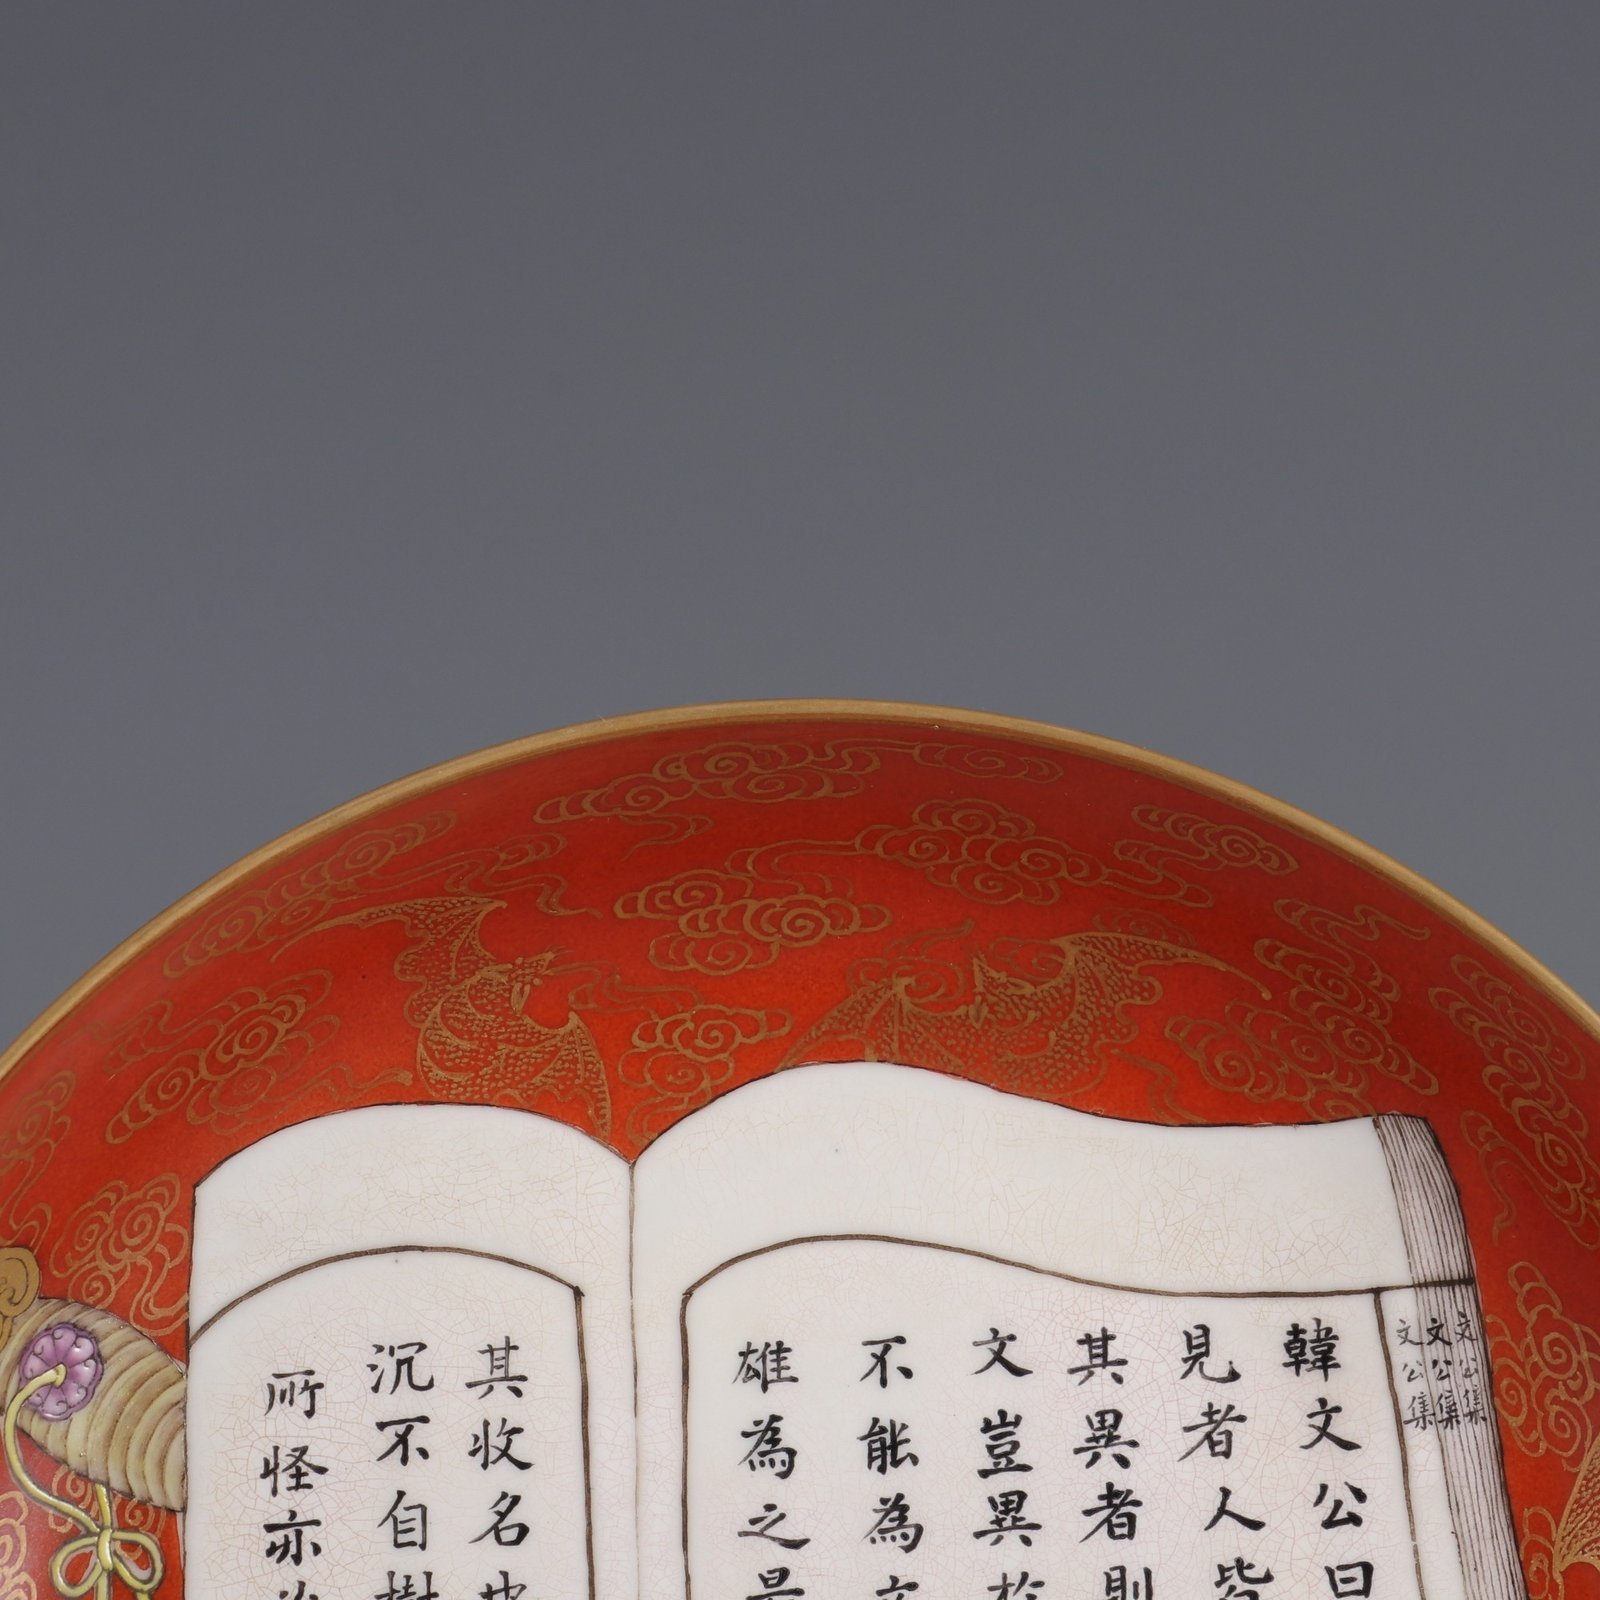 文公集
文公集
文公集
韓文公曰
見者人皆
其異者則
文豈異於
不能為文
雄為之最
其收名也
沉不自樹
所怪亦為